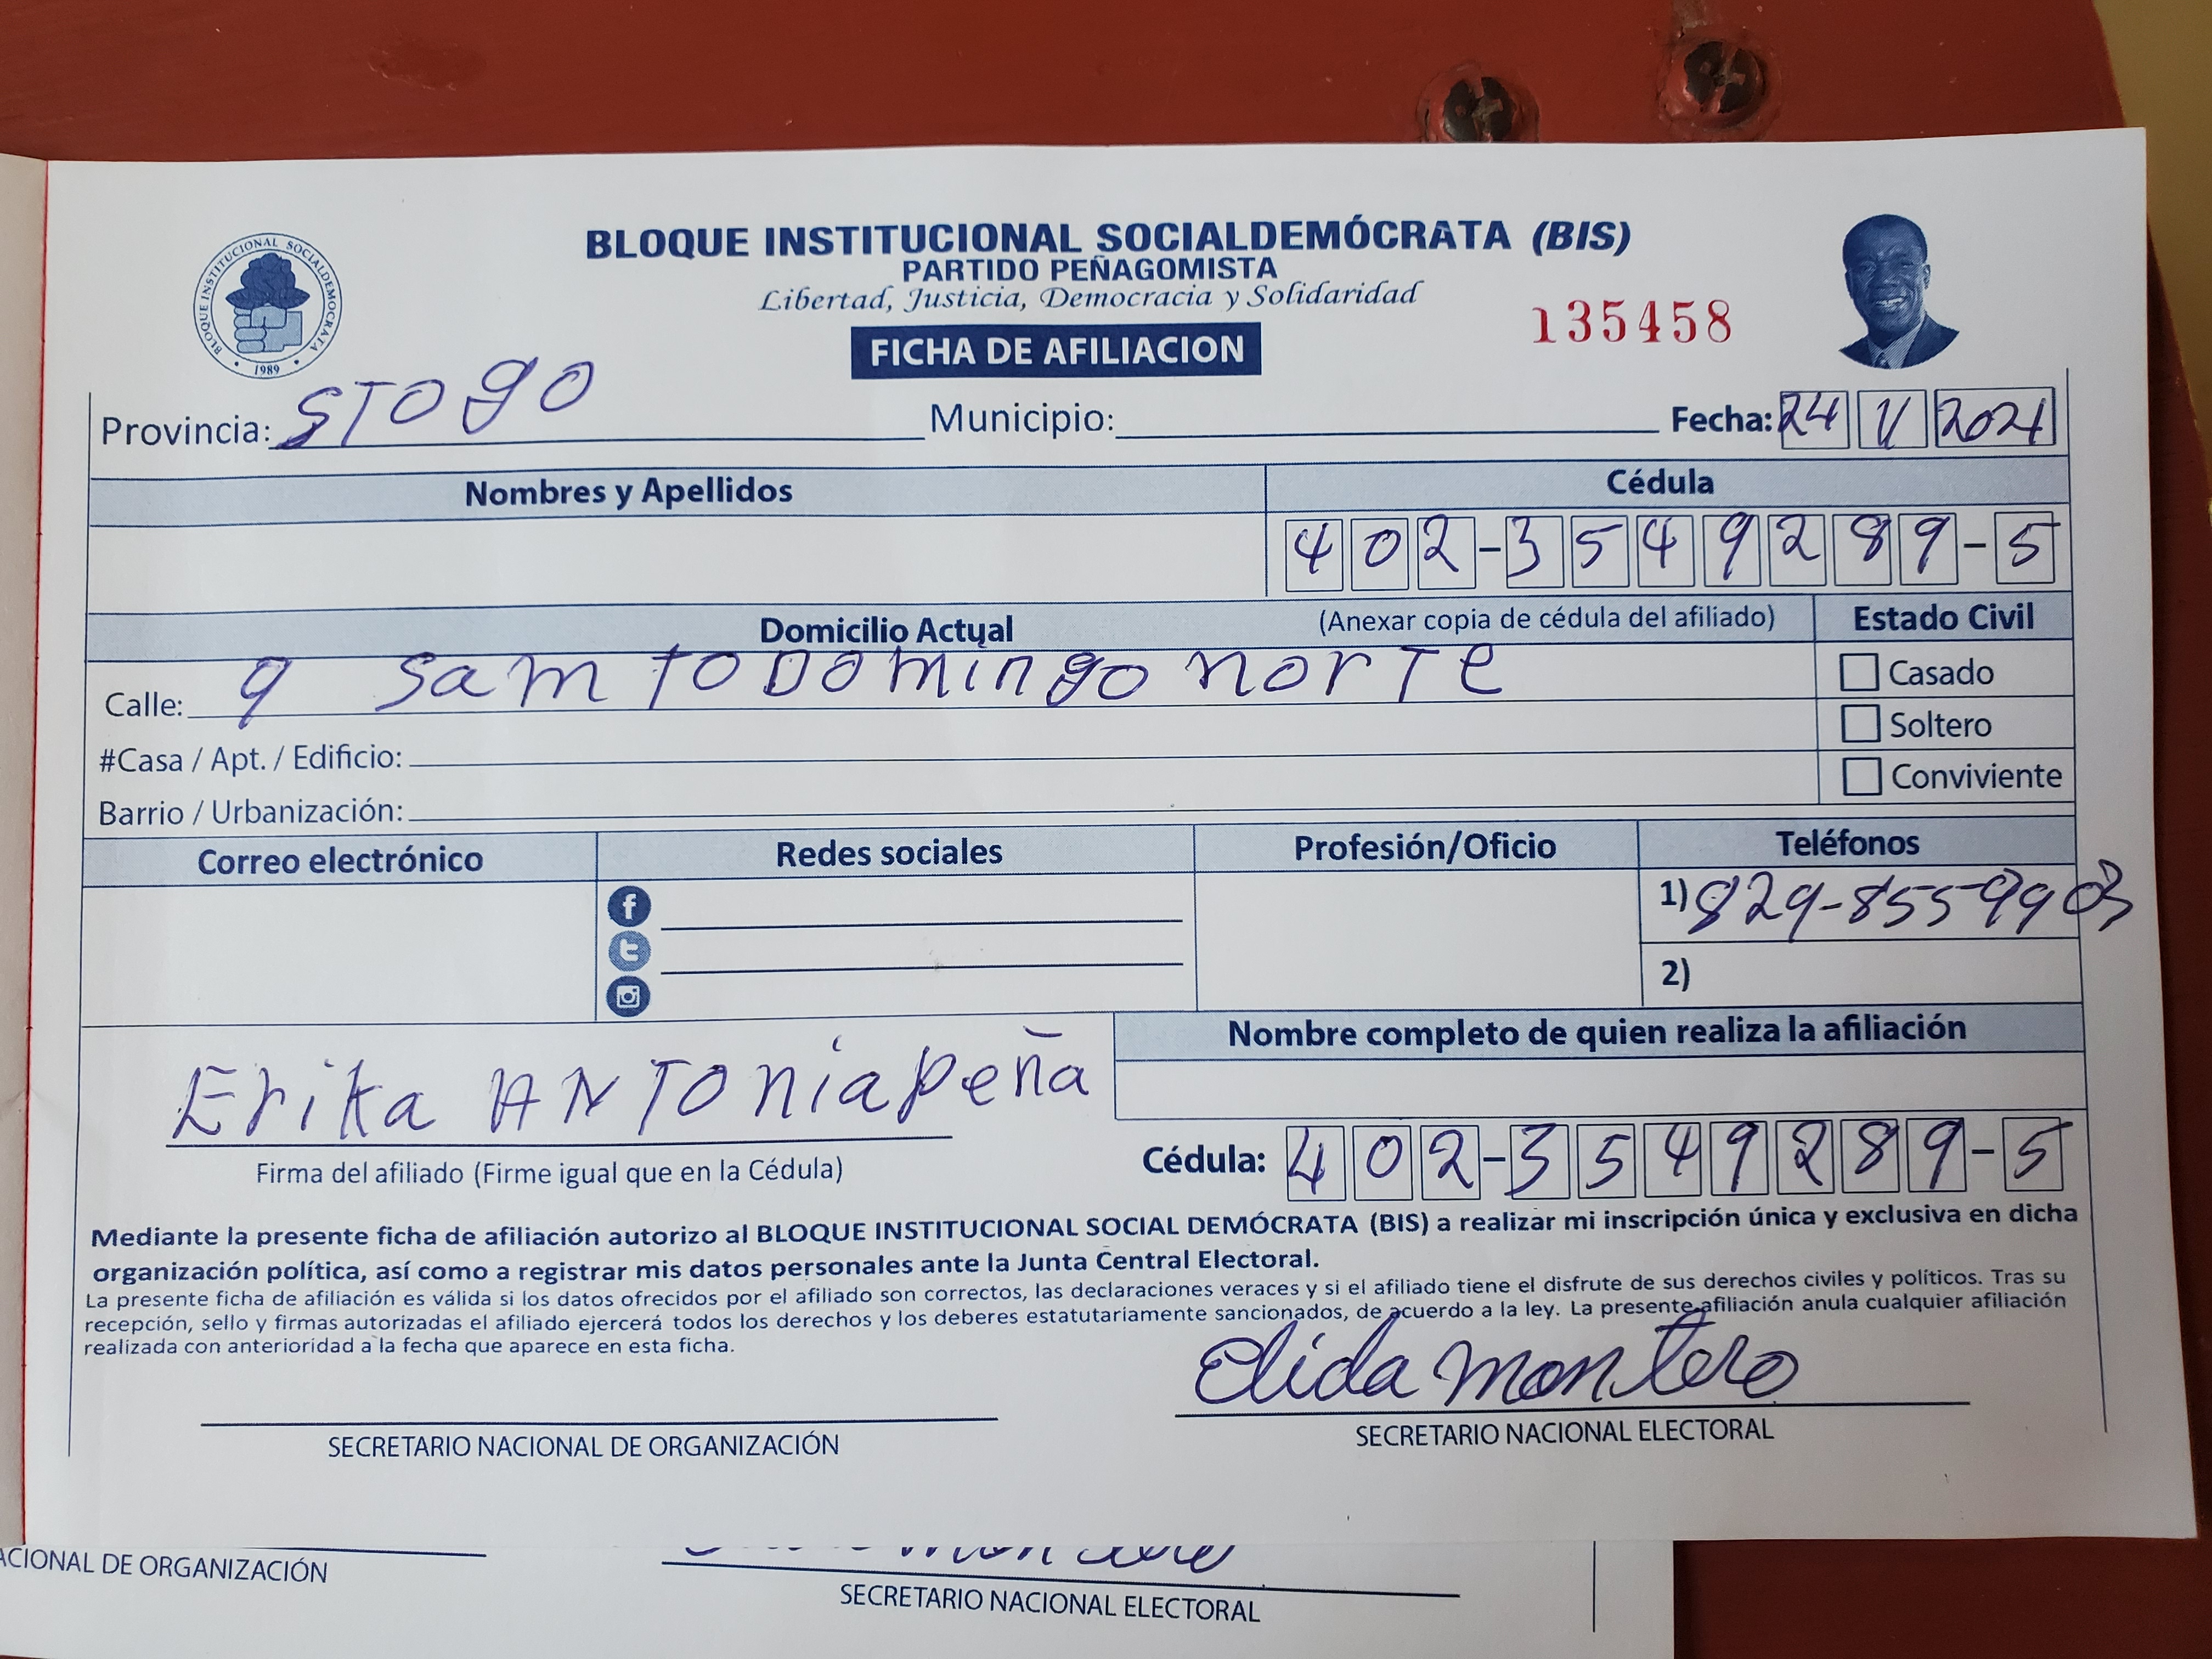 BLOQUE INSTITUCIONAL SOCIALDEMOCRATA
1989
BLOQUE INSTITUCIONAL SOCIALDEMÓCRATA (BIS)
PARTIDO PEÑAGOMISTA
Libertad, Justicia, Democracia y Solidaridad
135458
FICHA DE AFILIACION
Provincia: STOgO Municipio: Fecha: 24 11 2021
Nombres y Apellidos Cédula
402-3549289-5
Domicilio Actual (Anexar copia de cédula del afiliado) Estado Civil
Calle: 9 Samto Domingo norTe
Casado
#Casa / Apt. / Edificio:
Soltero
Barrio / Urbanización:
Conviviente
Correo electrónico Redes sociales Profesión/Oficio Teléfonos
1) 829-8559903
2)
Nombre completo de quien realiza la afiliación
Erika ANTOnia peña
Firma del afiliado (Firme igual que en la Cédula)
Cédula: 402-3549289-5
Mediante la presente ficha de afiliación autorizo al BLOQUE INSTITUCIONAL SOCIAL DEMÓCRATA (BIS) a realizar mi inscripción única y exclusiva en dicha
organización política, así como a registrar mis datos personales ante la Junta Central Electoral.
La presente ficha de afiliación es válida si los datos ofrecidos por el afiliado son correctos, las declaraciones veraces y si el afiliado tiene el disfrute de sus derechos civiles y políticos. Tras su
recepción, sello y firmas autorizadas el afiliado ejercerá todos los derechos y los deberes estatutariamente sancionados, de acuerdo a la ley. La presente afiliación anula cualquier afiliación
realizada con anterioridad a la fecha que aparece en esta ficha.
Elida montero
SECRETARIO NACIONAL DE ORGANIZACIÓN SECRETARIO NACIONAL ELECTORAL
ACIONAL DE ORGANIZACIÓN
SECRETARIO NACIONAL ELECTORAL